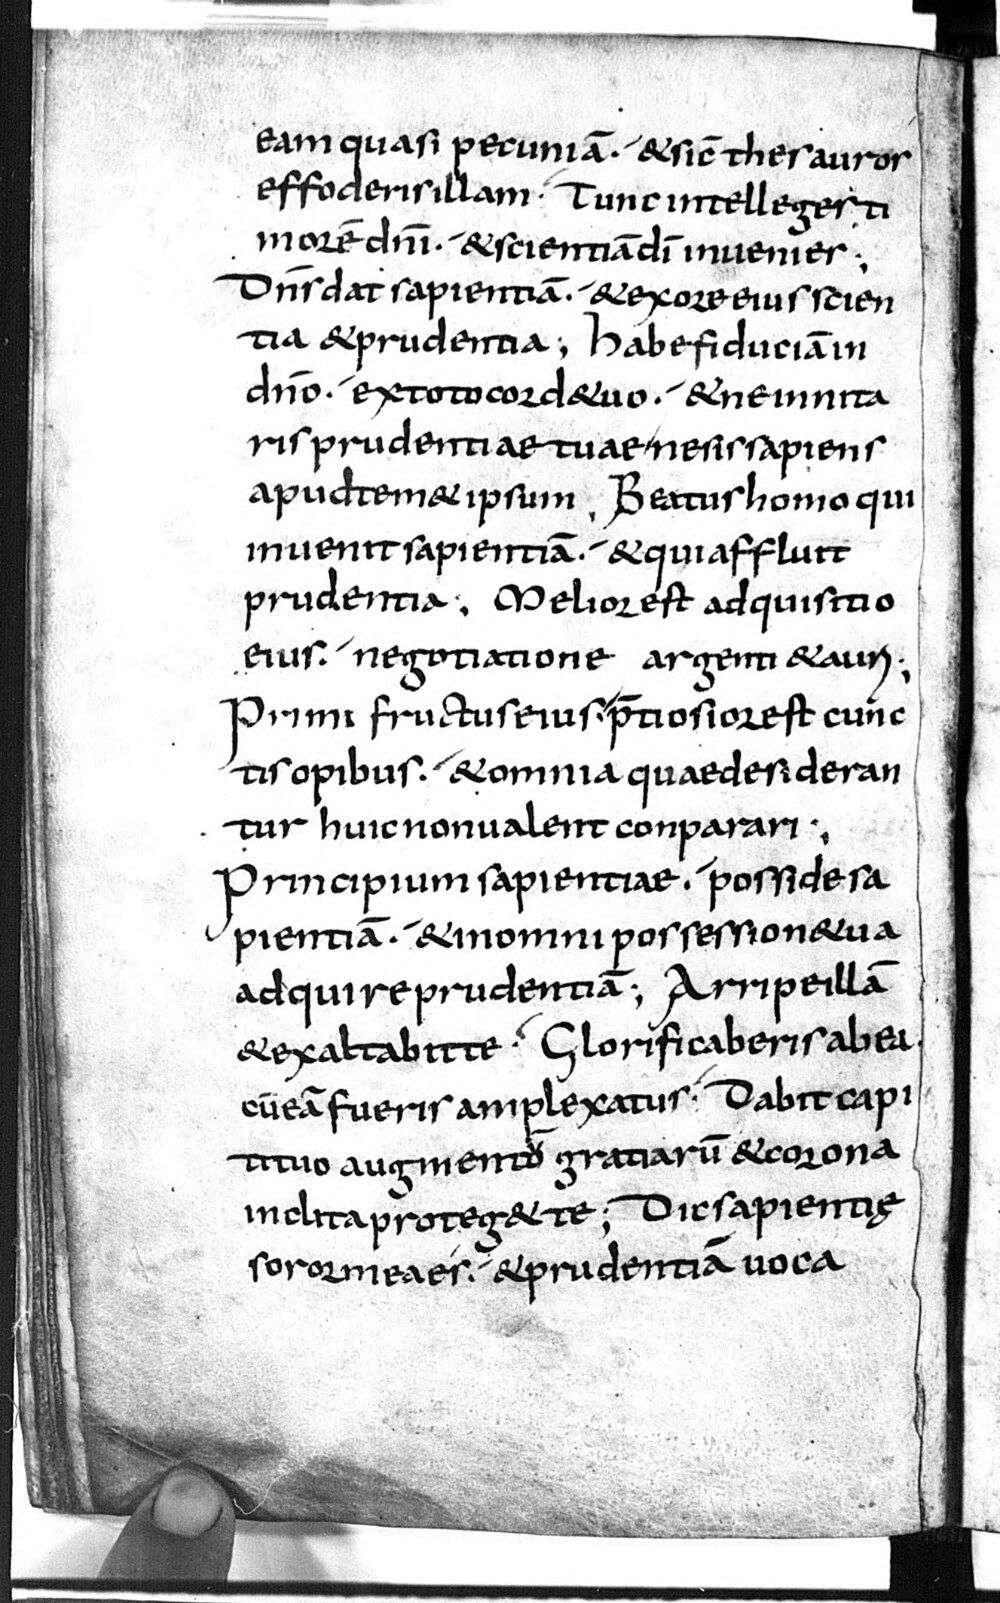 eam quasi pecuniā. & sic̄ thesauros
effoderis illam. Tunc intelleges ti
morē dn̄i. & scientiā dī inuenies;
Dn̄s dat sapientiā. & ex ore eius scien
tia & prudentia; Habe fiduciā in
dn̄o. ex toto cord& uo. & ne innita
ris prudentiae tuae ne sis sapiens
apud tem& ipsum, Beatus homo qui
inuenit sapientiā. & qui affluit
prudentia; Melior est adquisitio
eius. negotiatione argenti & auri;
Primi fructus eius. p̄tiosior est cunc
tis opibus. & omnia quae desideran
tur huic non ualent conparari;
Principium sapientiae. posside sa
pientiā. & in omni possession& ua
adquire prudentiā; Arripe illā
& exaltabit te. Glorificaberis ab ea.
cū eā fueris amplexatus. Dabit capi
ti tuo augmento gratiarū & corona
inclita proteg& te; Dic sapientię
soror mea es. & prudentiā uoca